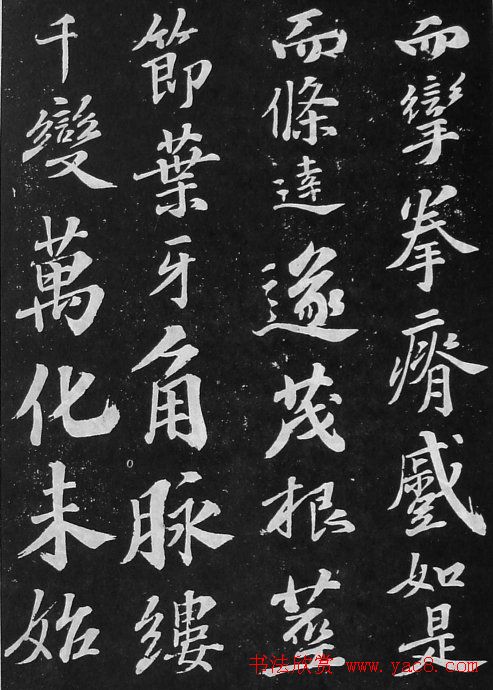 而攣拳瘠蹙如是
而條達遂茂根莖
節葉牙角脉縷
千變萬化未始
书法欣赏 www.yac8.com